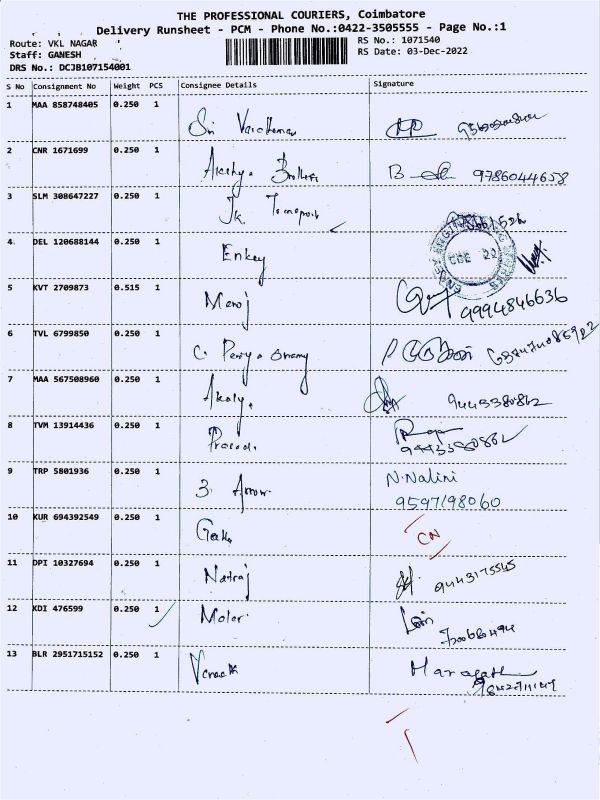 THE PROFESSIONAL COURIERS, Coimbatore
Delivery Runsheet - PCM - Phone No.:0422-3505555 - Page No.:1
Route: VKL NAGAR
Staff: GANESH
DRS No.: DCJB107154001
RS No.: 1071540
RS Date: 03-Dec-2022
S No Consignment No Weight PCS Consignee Details Signature
1 MAA 858748405 0.250 1
Sri
2 CNR 1671699 0.250 1
Akshya Brothers B 9786044658
3 SLM 308647227 0.250 1
JK Transport
4 DEL 120688144 0.250 1
Enkey
5 KVT 2709873 0.515 1
Manoj 9994846636
6 TVL 6799850 0.250 1
C.
7 MAA 567508960 0.250 1
Akalya 9443380862
8 TVM 13914436 0.250 1
Raja
9443380862
9 TRP 5801936 0.250 1
3 Arrow N.Nalini
9597198060
10 KUR 694392549 0.250 1
CN
11 DPI 10327694 0.250 1
Natraj 9443175545
12 KDI 476599 0.250 1
Moler
13 BLR 2951715152 0.250 1